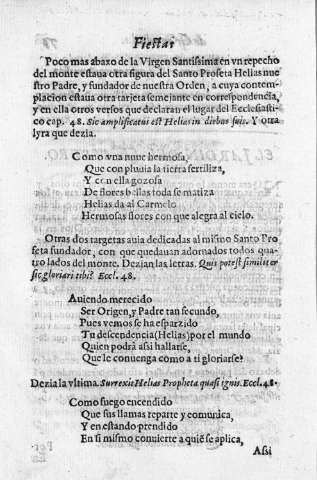 Fiestas
Poco mas abaxo de la Virgen Santissima en vn repecho
del monte estaua otra figura del Santo Profeta Helias nue
stro Padre, y fundador de nuestra Orden, a cuya contem-
placion estaua otra tarjeta semejante en correspondencia,
y en ella otros versos que declaran el lugar del Ecclesiasti-
co cap. 48. Sic amplificatus est Helias in diebus suis. Y otra
lyra que dezia.
Como vna nuue hermosa,
Que con pluuia la tierra fertiliza,
Y con ella gozosa
De flores bellas toda se matiza
Helias da al Carmelo
Hermosas flores con que alegra al cielo.
Otras dos targetas auia dedicadas al mismo Santo Pro
feta fundador, con que quedauan adornados todos qua-
tro lados del monte. Dezian las letras. Quis potest similiter
sic gloriari tibi? Eccl. 48.
Auiendo merecido
Ser Origen, y Padre tan fecundo,
Pues vemos se ha esparzido
Tu descendencia (Helias) por el mundo
Quien podrà assi hallarse,
Que le conuenga como a ti gloriarse?
Dezia la vltima. Surrexit Helias Propheta quasi ignis. Eccl. 48.
Como fuego encendido
Que sus llamas reparte y comunica,
Y en estando prendido
En si mismo conuierte a quiē se aplica,
Assi